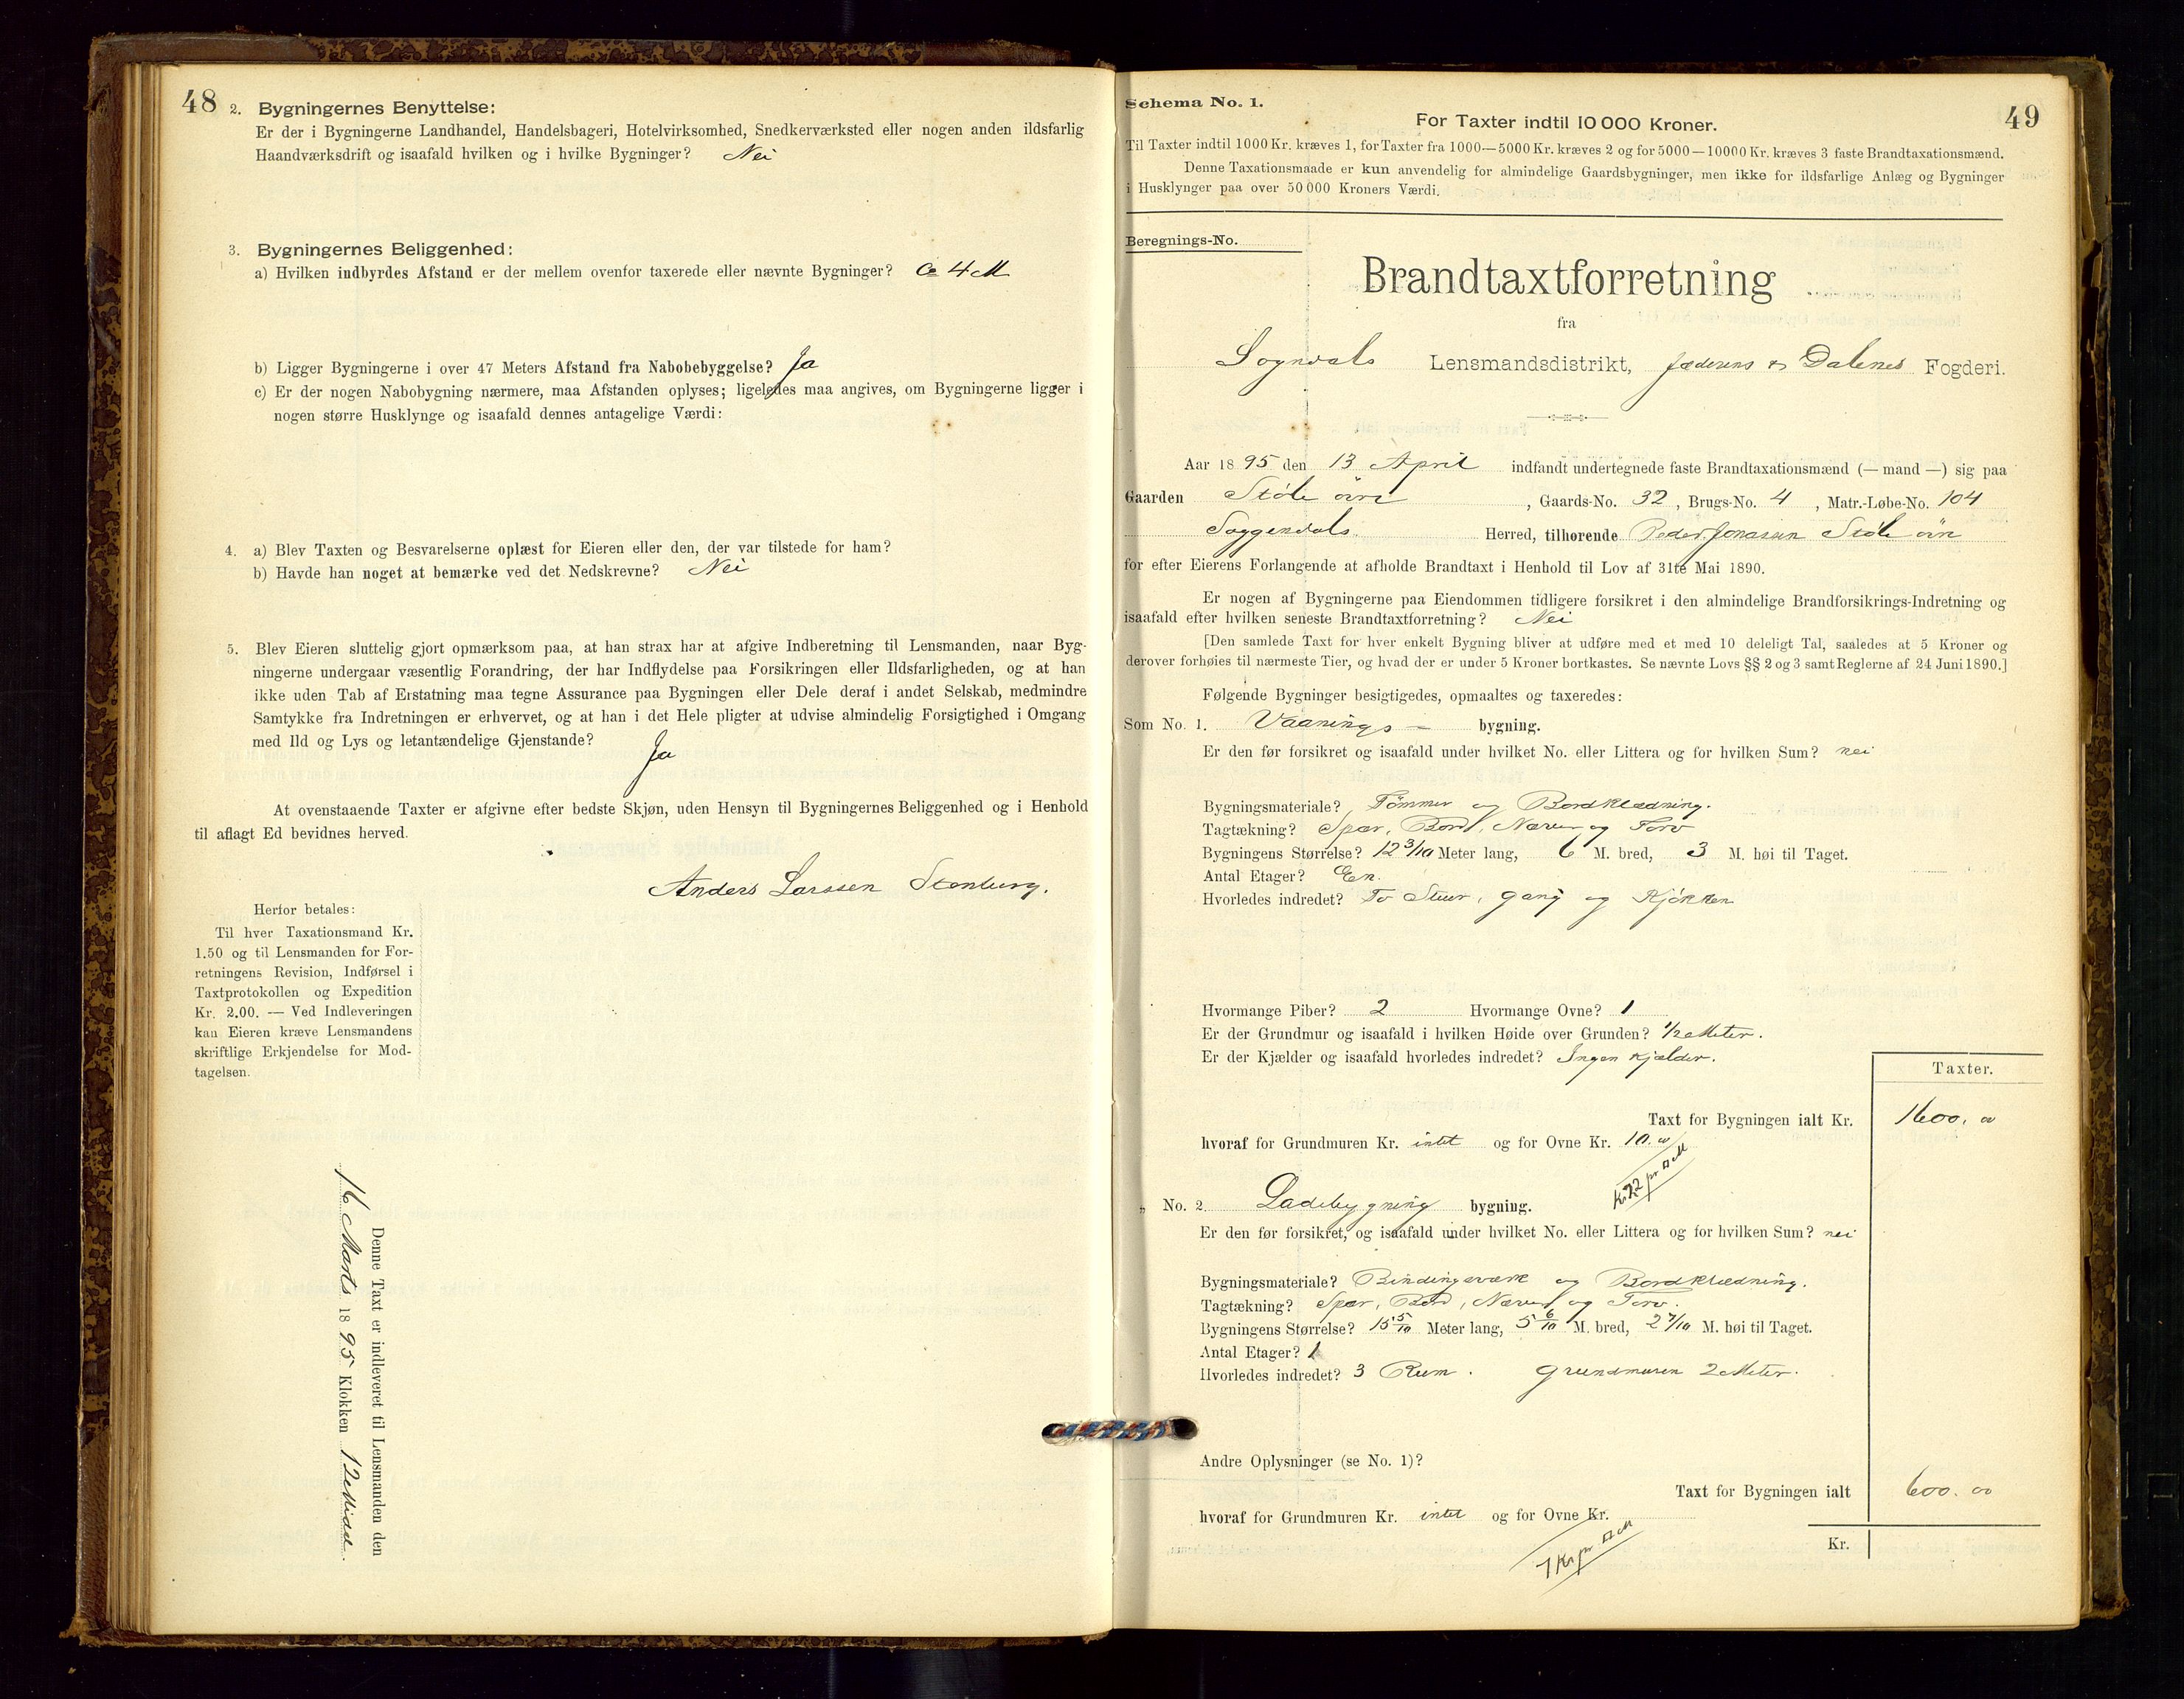 48
2. Bygningernes Benyttelse:
Er der i Bygningerne Landhandel, Handelsbageri, Hotelvirksomhed, Snedkerværksted eller nogen anden ildsfarlig
Haandværksdrift og isaafald hvilken og i hvilke Bygninger? Nei
3. Bygningernes Beliggenhed:
a) Hvilken indbyrdes Afstand er der mellem ovenfor taxerede eller nævnte Bygninger? Ca 4 M
b) Ligger Bygningerne i over 47 Meters Afstand fra Nabobebyggelse? Ja
c) Er der nogen Nabobygning nærmere, maa Afstanden oplyses; ligeledes maa angives, om Bygningerne ligger i
nogen større Husklynge og isaafald dennes antagelige Værdi:
4. a) Blev Taxten og Besvarelserne oplæst for Eieren eller den, der var tilstede for ham?
b) Havde han noget at bemærke ved det Nedskrevne? Nei
5. Blev Eieren sluttelig gjort opmærksom paa, at han strax har at afgive Indberetning til Lensmanden, naar Byg-
ningerne undergaar væsentlig Forandring, der har Indflydelse paa Forsikringen eller Ildsfarligheden, og at han
ikke uden Tab af Erstatning maa tegne Assurance paa Bygningen eller Dele deraf i andet Selskab, medmindre
Samtykke fra Indretningen er erhvervet, og at han i det Hele pligter at udvise almindelig Forsigtighed i Omgang
med Ild og Lys og letantændelige Gjenstande? Ja
At ovenstaaende Taxter er afgivne efter bedste Skjøn, uden Hensyn til Bygningernes Beliggenhed og i Henhold
til aflagt Ed bevidnes herved.
Anders Larssen Stenberg.
Herfor betales:
Til hver Taxationsmand Kr.
1.50 og til Lensmanden for For-
retningens Revision, Indførsel i
Taxtprotokollen og Expedition
Kr. 2.00. — Ved Indleveringen
kan Eieren kræve Lensmandens
skriftlige Erkjendelse for Mod-
tagelsen.
Denne Taxt er indleveret til Lensmanden den
16 Marts 1895 Klokken 12 Midd.
Schema No. 1.
49
For Taxter indtil 10 000 Kroner.
Til Taxter indtil 1000 Kr. kræves 1, for Taxter fra 1000—5000 Kr. kræves 2 og for 5000—10000 Kr. kræves 3 faste Brandtaxationsmænd.
Denne Taxationsmaade er kun anvendelig for almindelige Gaardsbygninger, men ikke for ildsfarlige Anlæg og Bygninger
i Husklynger paa over 50 000 Kroners Værdi.
Beregnings-No.
Brandtaxtforretning
fra
Sogndals Lensmandsdistrikt, Jæderens & Dalenes Fogderi.
Aar 1895 den 13 April indfandt undertegnede faste Brandtaxationsmænd (— mand —) sig paa
Gaarden Støle øvre, Gaards-No. 32, Brugs-No. 4, Matr.-Løbe-No. 104
Soggendals Herred, tilhørende Peder Jonassen Støle
for efter Eierens Forlangende at afholde Brandtaxt i Henhold til Lov af 31te Mai 1890.
Er nogen af Bygningerne paa Eiendommen tidligere forsikret i den almindelige Brandforsikrings-Indretning og
isaafald efter hvilken seneste Brandtaxtforretning? Nei
[Den samlede Taxt for hver enkelt Bygning bliver at udføre med et med 10 deleligt Tal, saaledes at 5 Kroner og
derover forhøies til nærmeste Tier, og hvad der er under 5 Kroner bortkastes. Se nævnte Lovs §§ 2 og 3 samt Reglerne af 24 Juni 1890.]
Følgende Bygninger besigtigedes, opmaaltes og taxeredes:
Som No. 1. Vaanings- bygning.
Er den før forsikret og isaafald under hvilket No. eller Littera og for hvilken Sum? nei
Bygningsmateriale? Tömmer og Bordklædning.
Tagtækning? Spær, Bord, Næver og Torv
Bygningens Størrelse? 12 3/10 Meter lang, 6 M. bred, 3 M. høi til Taget.
Antal Etager? Een.
Hvorledes indredet? To Stuer, gang og Kjøkken
Hvormange Piber? 2 Hvormange Ovne? 1
Er der Grundmur og isaafald i hvilken Høide over Grunden? 1/2 Meter.
Er der Kjælder og isaafald hvorledes indredet? Ingen Kjælder.
Taxter.
Taxt for Bygningen ialt Kr. 1600. 00
hvoraf for Grundmuren Kr. intet og for Ovne Kr. 10.00
Kr 22 pr □ M
„ No. 2. Ladebygning bygning.
Er den før forsikret, og isaafald under hvilket No. eller Littera og for hvilken Sum? nei
Bygningsmateriale? Bindingsværk og Bordklædning.
Tagtækning? Spær, Bord, Næver og Torv.
Bygningens Størrelse? 15 5/10 Meter lang, 5 6/10 M. bred, 2 7/10 M. høi til Taget.
Antal Etager? 1
Hvorledes indredet? 3 Rum. Grundmuren 2 Meter.
Andre Oplysninger (se No. 1)?
Taxt for Bygningen ialt 600. 00
hvoraf for Grundmuren Kr. intet og for Ovne Kr.
7 Kr pr □ M
Kr.